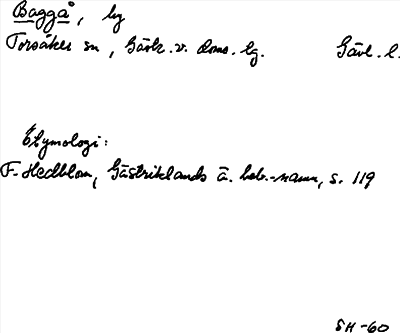 Baggå, by
Torsåker sn, Gästr. v. doms. lg. Gävl. l.
Etymologi:
F. Hedblom, Gästriklands ä. beb.-namn, s. 119
SH-60